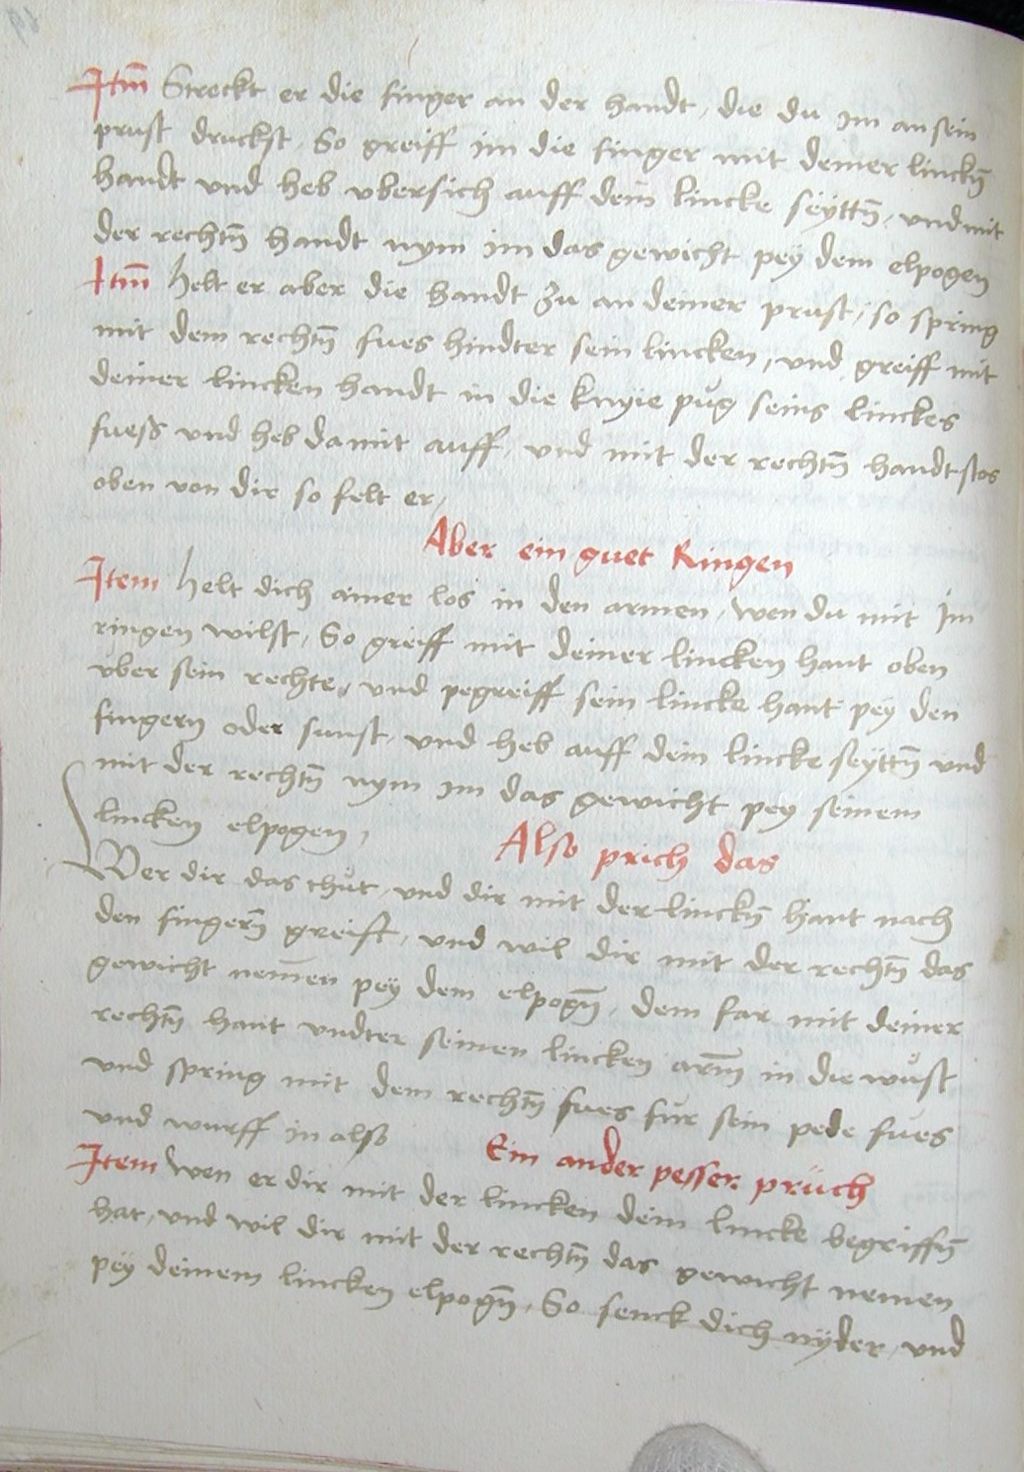 Itm̄ Streckt er die finger an der handt / die du im an sein
prust druckst / So greiff im die finger mit deiner linckn̄
handt vnd heb vbersich auff dein̄ lincke seyttn̄ / vnd mit
der rechtn̄ handt nym im das gewicht pey dem elpogen
Itm̄ helt er aber die handt zu an deiner prust / so spring
mit dem rechtn̄ fues hindter sein lincken / vnd greiff mit
deiner lincken handt in die knyie pug seins linckes
fuess vnd heb damit auff / vnd mit der rechtn̄ handt stos
oben von dir so felt er /
Aber ein guet Ringen
Item helt dich ainer los in den armen / wen du mit Im
ringen wilst / So greiff mit deiner lincken hant oben
vber sein rechte / vnd pegreiff sein lincke hant pey den
fingern oder sunst / vnd heb auff dein lincke seyttn̄ vnd
mit der rechtn̄ nym im das gewicht pey seinem
lincken elpogen /
Also prich das
Wer dir das thůt / vnd dir mit der linckn̄ hant nach
den fingern̄ greift / vnd wil dir mit der rechtn̄ das
gewicht nemen pey dem elpogn̄ / dem far mit deiner
rechtn̄ hant vndter seinen lincken arm̄ in die wůst
vnd spring mit dem rechtn̄ fues fur sein pede fues
vnd wurff in also
Ein ander pesser prüch
Item wen er dir mit der lincken dein lincke begriffn̄
hat / vnd wil dir mit der rechtn̄ das gewicht nemen
pey deinem lincken elpogn̄ / So senck dich nÿder / vnd